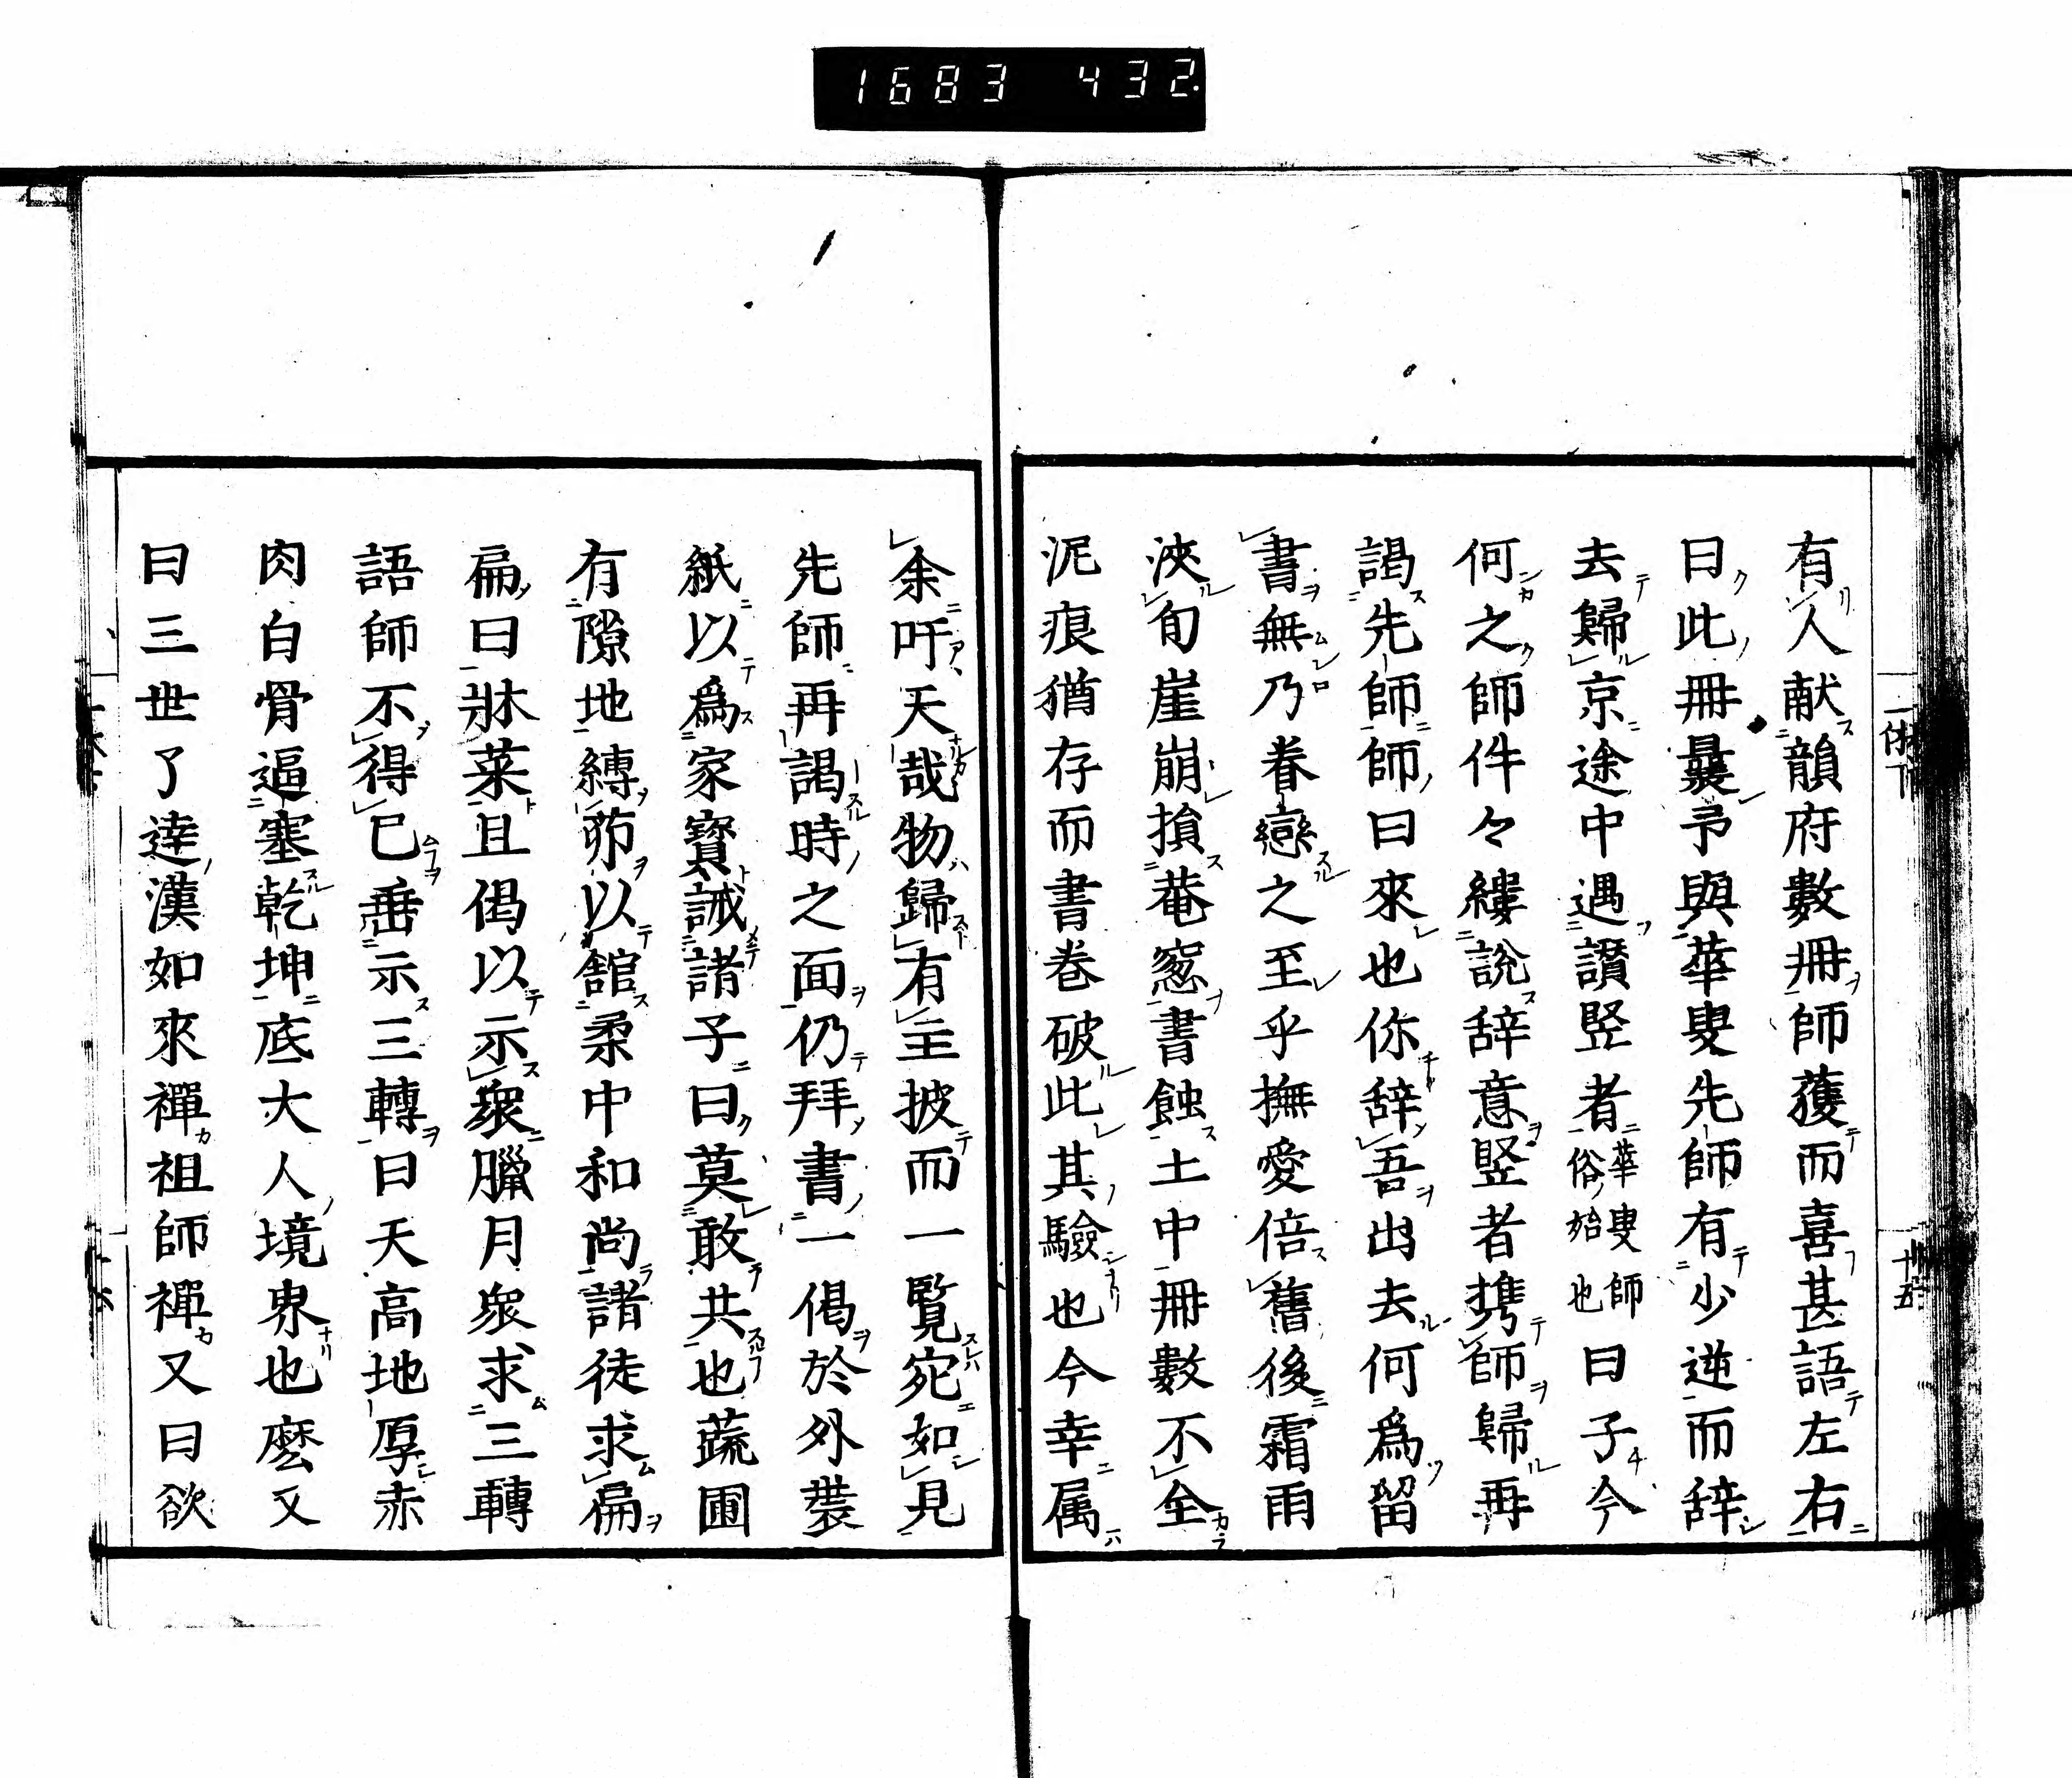 1683 432.
有人献韻府數冊師獲而喜甚語左右
曰此冊曩予與華叟先師有少逆而辞
去歸京途中遇讃竪者華叟師俗姪也曰子今
何之師件々縷說辞意竪者携師歸再
謁先師師曰來也你辞吾出去何爲留
書無乃眷戀之至乎撫愛倍舊後霜雨
浹旬崖崩損菴窓書蝕土中冊數不全
泥痕猶存而書卷破此其驗也今幸属
余吁天哉物歸有主披而一覧宛如見
先師再謁時之面仍拜書一偈於外裝
紙以爲家寳誡諸子曰莫敢共也蔬圃
有隙地縛茆以舘柔中和尚諸徒求扁
扁曰牀菜且偈以示衆臘月衆求三轉
語師不得已垂示三轉曰天高地厚赤
肉白骨逼塞乾坤底大人境界也麽又
曰三世了達漢如來禪祖師禪又曰欲